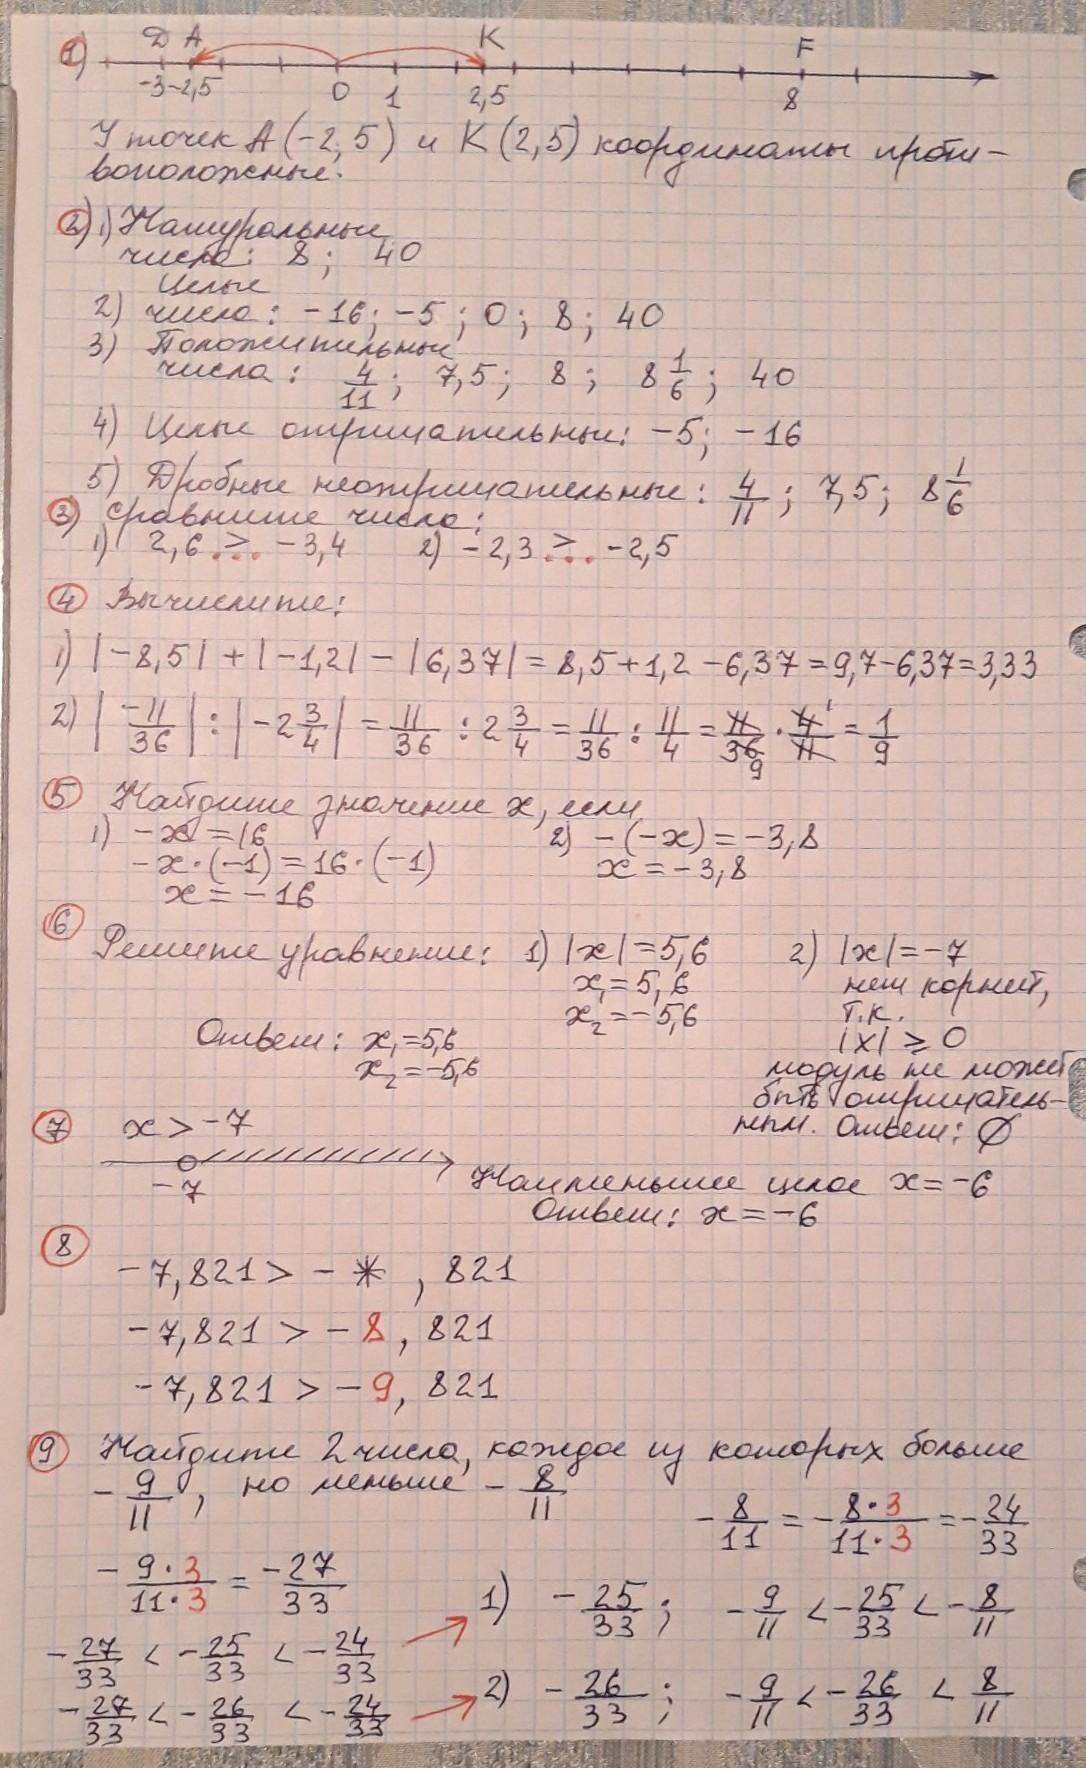 1) D A K F
-3 -2,5 0 1 2,5 8
У точек A(-2,5) и K(2,5) координаты проти-
воположные.
2) 1) Натуральные
числа: 8; 40
Целые
2) числа: -16; -5; 0; 8; 40
3) Положительные
числа: 4/11; 7,5; 8; 8 1/6; 40
4) Целые отрицательные: -5; -16
5) Дробные неотрицательные: 4/11; 7,5; 8 1/6
3) Сравните числа:
1) 2,6 > ... -3,4 2) -2,3 > ... -2,5
4 Вычислите:
1) |-8,5| + |-1,2| - |6,37| = 8,5+1,2-6,37=9,7-6,37=3,33
2) |-11/36| : |-2 3/4| = 11/36 : 2 3/4 = 11/36 : 11/4 = 11/36 9 · 4 1/11 = 1/9
5 Найдите значение x, если
1) -x=16 2) -(-x)=-3,8
-x·(-1)=16·(-1) x=-3,8
x=-16
6
Решите уравнение: 1) |x|=5,6 2) |x|=-7
x₁=5,6 нет корней,
x₂=-5,6 т.к.
Ответ: x₁=5,6 |x| ⩾ 0
x₂=-5,6 модуль не может
быть отрицатель-
ным. Ответ: ∅
7 x>-7
-7 Наименьшее целое x=-6
Ответ: x=-6
8
-7,821 > - * , 821
-7,821 > -8, 821
-7,821 > -9, 821
9 Найдите 2 числа, каждое из которых больше
-9/11, но меньше -8/11
-8/11 = -8·3/11·3 = -24/33
-9·3/11·3 = -27/33
1) -25/33; -9/11 < -25/33 < -8/11
-27/33 < -25/33 < -24/33
2) -26/33; -9/11 < -26/33 < 8/11
-27/33 < -26/33 < -24/33